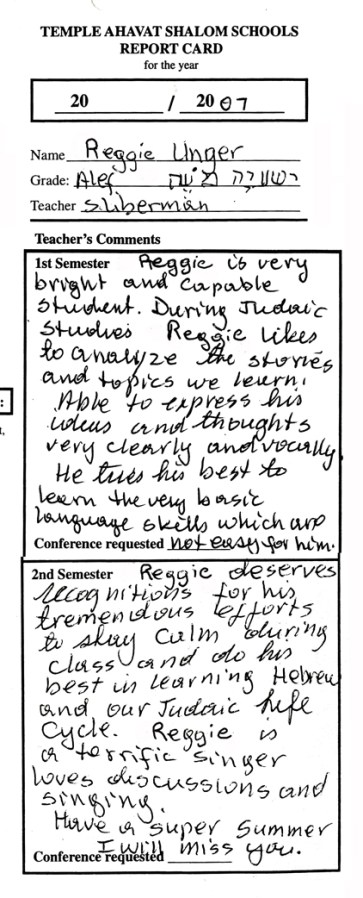 TEMPLE AHAVAT SHALOM SCHOOLS
REPORT CARD
for the year
20 / 20 07
Name Reggie Unger
Grade: Alef
Teacher S. Liberman
Teacher's Comments
1st Semester Reggie is very
bright and capable
student. During Judaic
Studies Reggie likes
to analyze the stories
and topics we learn.
Able to express his
ideas and thoughts
very clearly and vocally.
He tries his best to
learn the very basic
language skills which are
Conference requested not easy for him.
2nd Semester Reggie deserves
recognitions for his
tremendous efforts
to stay calm during
class and do his
best in learning Hebrew
and our Judaic life
cycle. Reggie is
a terrific singer
loves discussions and
singing.
Have a super summer
I will miss you.
Conference requested